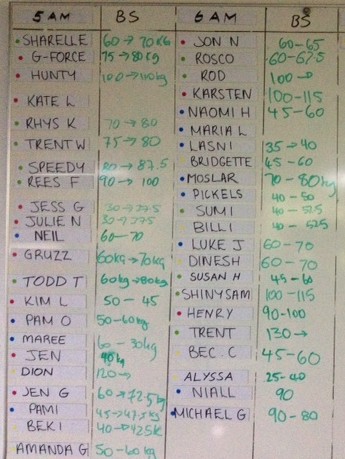 5 AM BS 6 AM BS
SHARELLE 60→70KG JON N 60-65
G-FORCE 75→80kg ROSCO 60-67.5
HUNTY 100→110kg ROD 100→
KARSTEN 100-115
KATE L NAOMI H 45-60
RHYS K 70→80 MARIA L
TRENT W 75→80 LASNI 35→40
BRIDGETTE 45-60
SPEEDY 80→87.5 MOSLAR 70-80kg
REES F 90→100 PICKELS 40-50
JESS G 30→27.5 SUMI 40-52.5
JULIE N 30→27.5 BILLI 40-52.5
NEIL 60-70 LUKE J 60-70
GRUZZ 60kg→70kg DINESH 60-70
TODD T 60kg→80kg SUSAN H 45-60
KIM L 50-45 SHINYSAM 100-115
PAM O 50-60kg HENRY 90-100
MAREE 60-30kg TRENT 130→
JEN 40kg BEC.C 45-60
DION 120→ ALYSSA 25-40
JEN G 60→72.5kg NIALL 90
PAMI 45→47.5kg MICHAEL G 90-80
BEK I 40→42.5K
AMANDA G 50-60kg